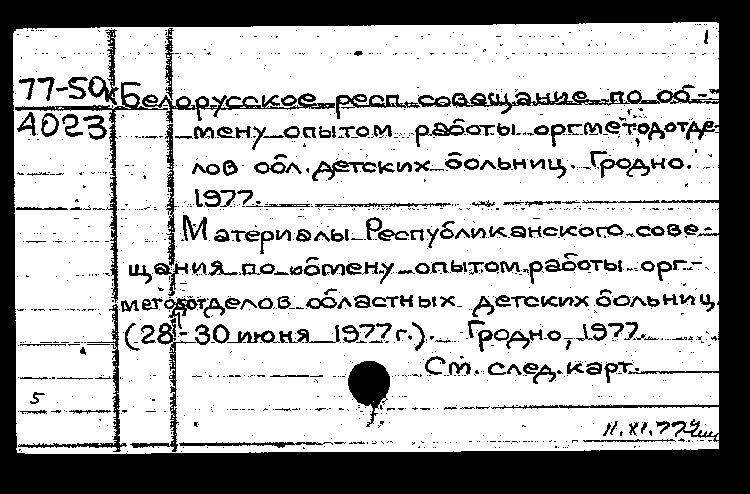 1
77-50к Белорусское респ. совещание по об-
4023 мену опытом работы оргметодотде-
лов обл. детских больниц. Гродно.
1977.
Материалы Республиканского сове-
щания по обмену опытом работы орг-
методотделов областных детских больниц.
(28-30 июня 1977 г.). Гродно, 1977.
См. след. карт.
5
11.XI.77